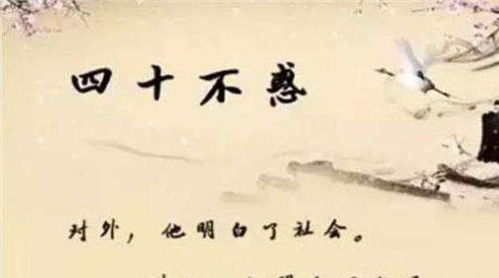 四十不惑
对外，他明白了社会。